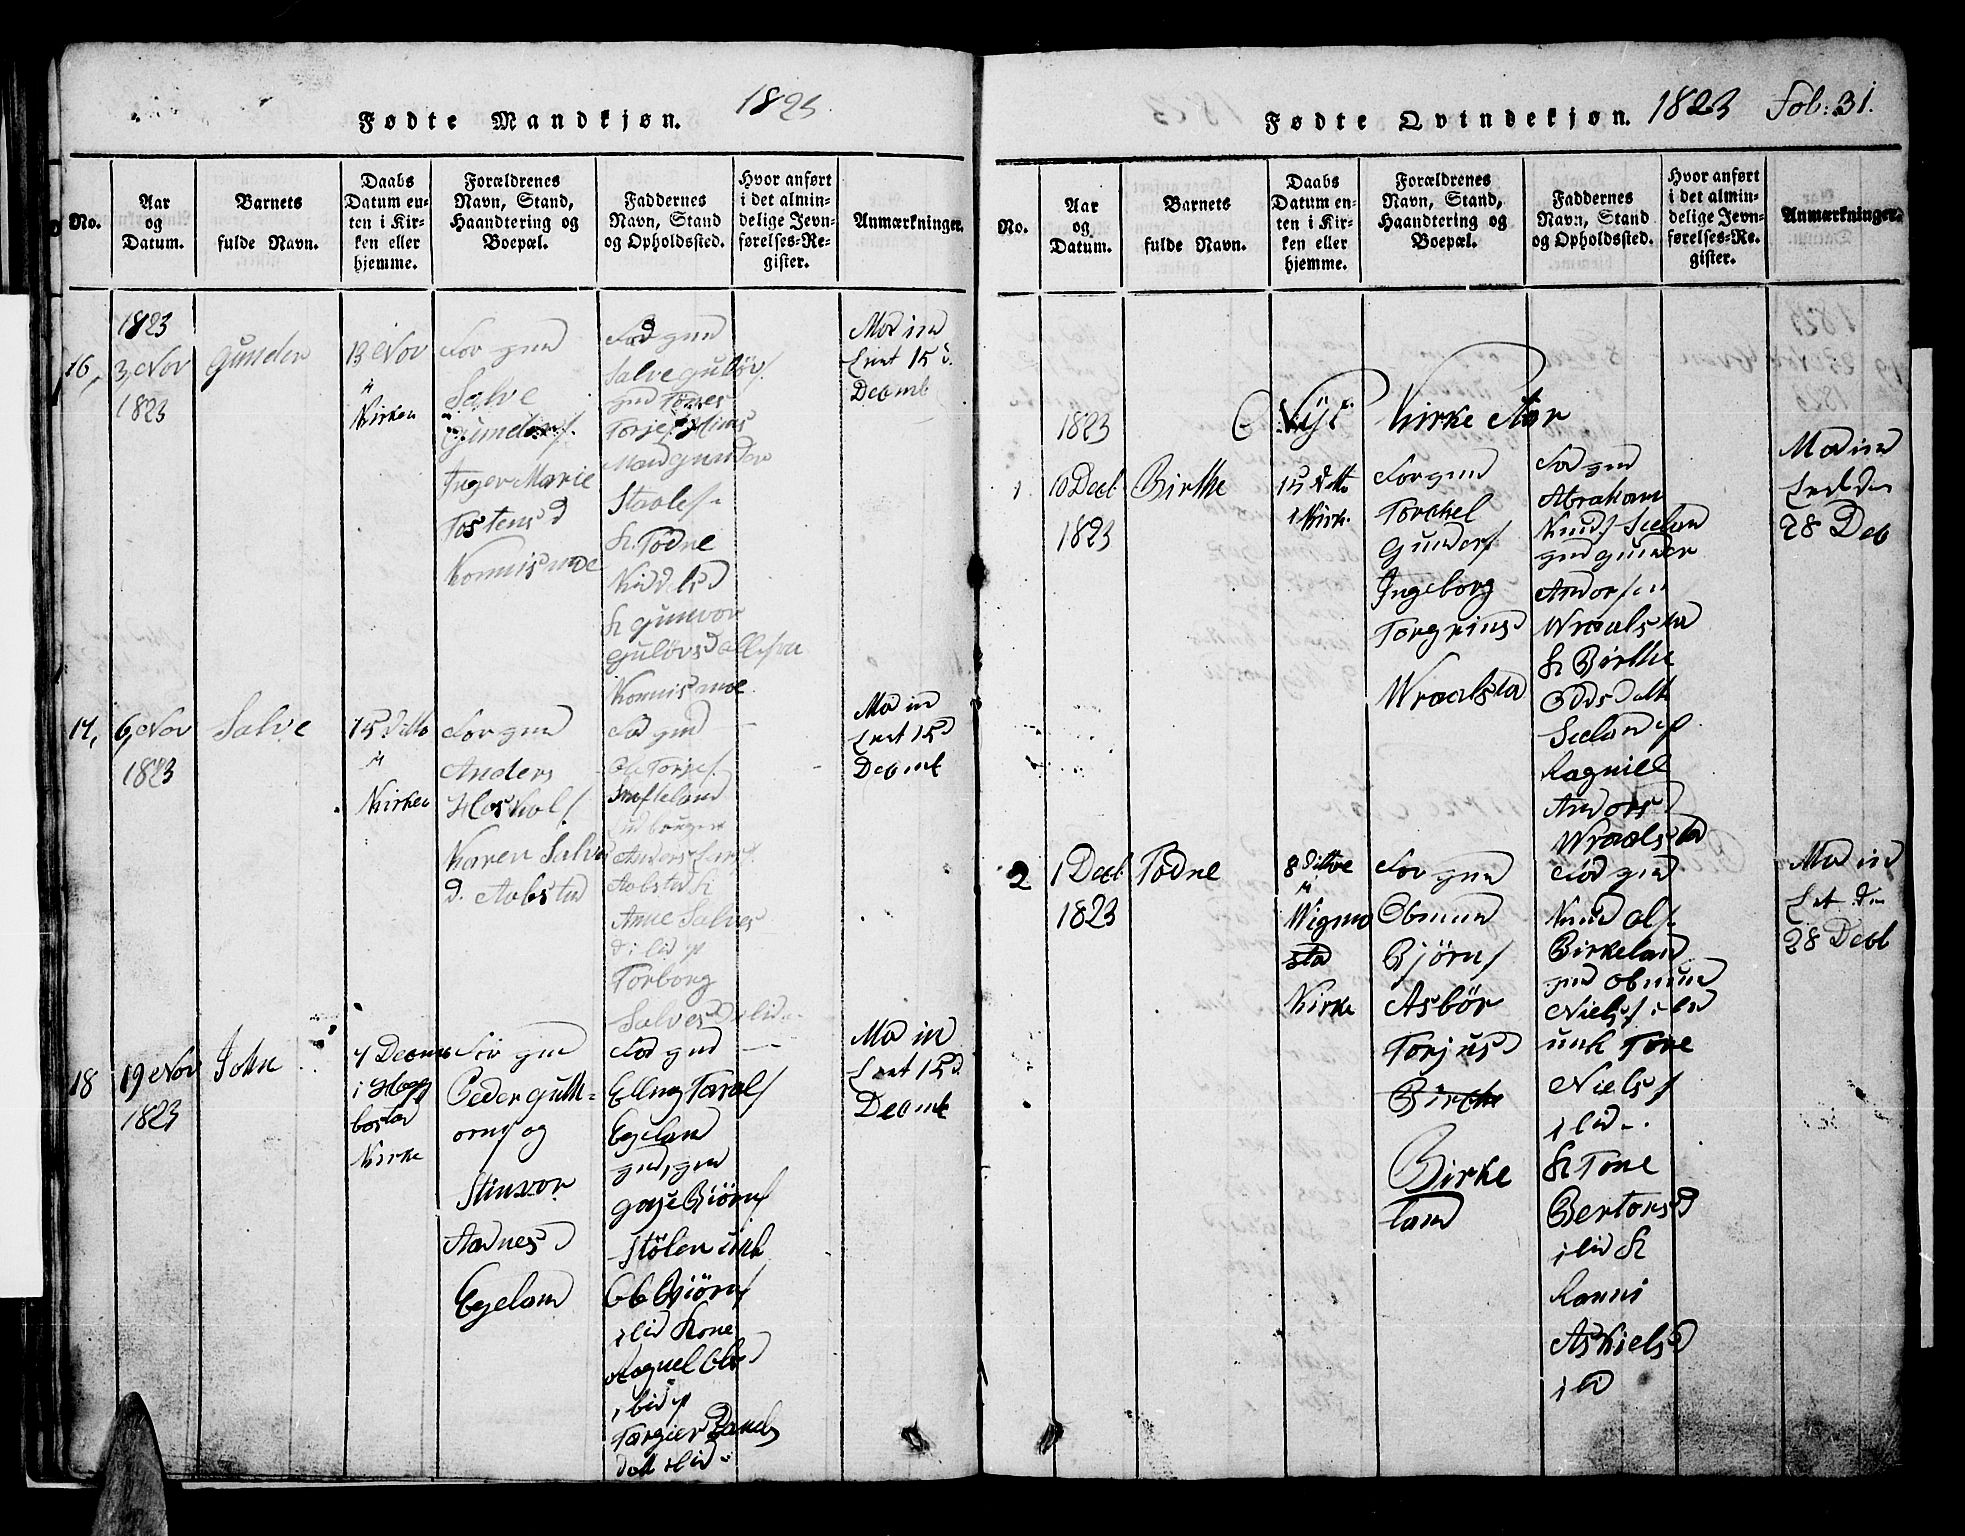 Fødte Mandkjøn. 1823
No.
Aar
og
Datum.
Barnets
fulde Navn.
Daabs
Datum en-
ten i Kir-
ken eller
hjemme.
Forældrenes
Navn, Stand,
Haandtering og
Boepæl.
Faddernes
Navn, Stand
og Opholdssted.
Hvor anført
i det almin-
delige Jevn-
førelses-Re-
gister.
Anmærkninger.
1823
16,
3, Nov
1823
Gunder
13 Nov
Kirken
For gm
Salve
Gunders/
Inger Marie
Tostens d
Konnismoe
Fad gm
Salve Guløvs/
gm
Torje
Mand Gunder
Staales/
K. Todne
Kiddelsd
K Gunvor
Guløvsd alle fra
Konnismoe
Mod in
15 d
Decmb
17,
6, Nov
1823
Salve
15 ditto
Kirken
For gm
Anders
Karen Salve
d. Aabstad
Fad gm
Ole Torjes/
Anders
Aabstad K
Anne Salves
d i lid p
Torborg
Salvesd
Mod in
15 d
Decmb
18
19 Nov
1823
John
7 Decmb
i Hæg
bostad
Kirke
For gm
Peder Gutt-
orms/ og
Stinvor
Aadnes d
Egeland
Fad gm
Elling Taral/
Egeland
Bjørns/
Stølen unk
Ole Bjørns/
i lid Kone
Ole d
i lid p
Daniels
datt i lid
Mod in
15 d
Decmb
Fødte Qvindekjøn. 1823 Fol: 31.
No.
Aar
og
Datum.
Barnets
fulde Navn.
Daabs
Datum en-
ten i Kir-
ken eller
hjemme.
Forældrenes
Navn, Stand,
Haandtering og
Boepæl.
Faddernes
Navn, Stand
og Opholdssted.
Hvor anført
i det almin-
delige Jevn-
førelses-Re-
gister.
Anmærkninger.
Nyt Kirke Aar
1823
1
10 Decb
1823
Birthe
15 ditto
i Kirk.
For gm
Torchel
Gunders/
Ingeborg
Torgrims d
Wraalstad
Fad gm
Abraham
Knuds/ Sæland
gm Gunder
Andersen
Wraalstad
K Birthe
Odds datt
Sæland p
Ragnill
Anders d
Wraalstad
Mod in
28 Deb
2
1 Decb
1823
Todne
8 ditto
Wigmo
stad
Kirke
For gm
Obmund
Bjørns/
Asbør
Torjusd
Birke
land
Fad gm
Knud Ols/
Birkeland
gm Obmund
Niels/ i lid
unk Tore
Niels/
i lid
K Tone
Bertorsd
i lid K
Ranni
Askielsd
i lid
Mod in
28 Decb